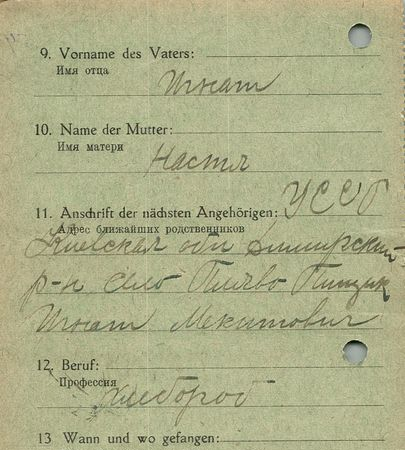 9. Vorname des Vaters:
Имя отца
Игнат
10. Name der Mutter:
Имя матери
Настя
11. Anschrift der nächsten Angehörigen: УССР
Адрес ближайших родственников
Киевская обл
р-н село Пищик
Игнат
12. Beruf:
Профессия
хлебороб
13 Wann und wo gefangen: